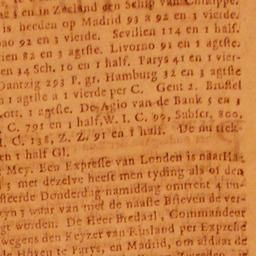 en Zeeland den Schip van Chnappe.
is heeden op Madrid 93 a 92 en 1 vierde.
ao 92 en 1 vierde. Sevilien 114 en 1 half.
ien 82 en 3 agtste. Livorno 91 en 1 agtste.
en 34 Sch. 10 en 1 half. Parys 41 en 1 vier-
Dantzig 293 P. gr. Hamburg 32 en 3 agtste
1 agtste a 1 vierde per C. Gent 2. Brussel
ott. 1 agtste. De Agio van de Bank 5 en 3
C. 791 en 1 half, W. I. C. 99, Subscr. 800,
I. C. 138, Z. Z. 91 en 1 half. De nu
en 1 half Gl.
Mey. Een Expresse van Londen is naar
3 met dezelve heeft men tyding als of den
steerde Donderdag namiddag omtrent 4 uu-
zyn; waar van met de naaste Brieven de ver-
gt werden. De Heer Bredaal, Commandeur
wegens den Keyzer van Rusland per Expresse
de Hoven te Parys, en Madrid, om aldaar de